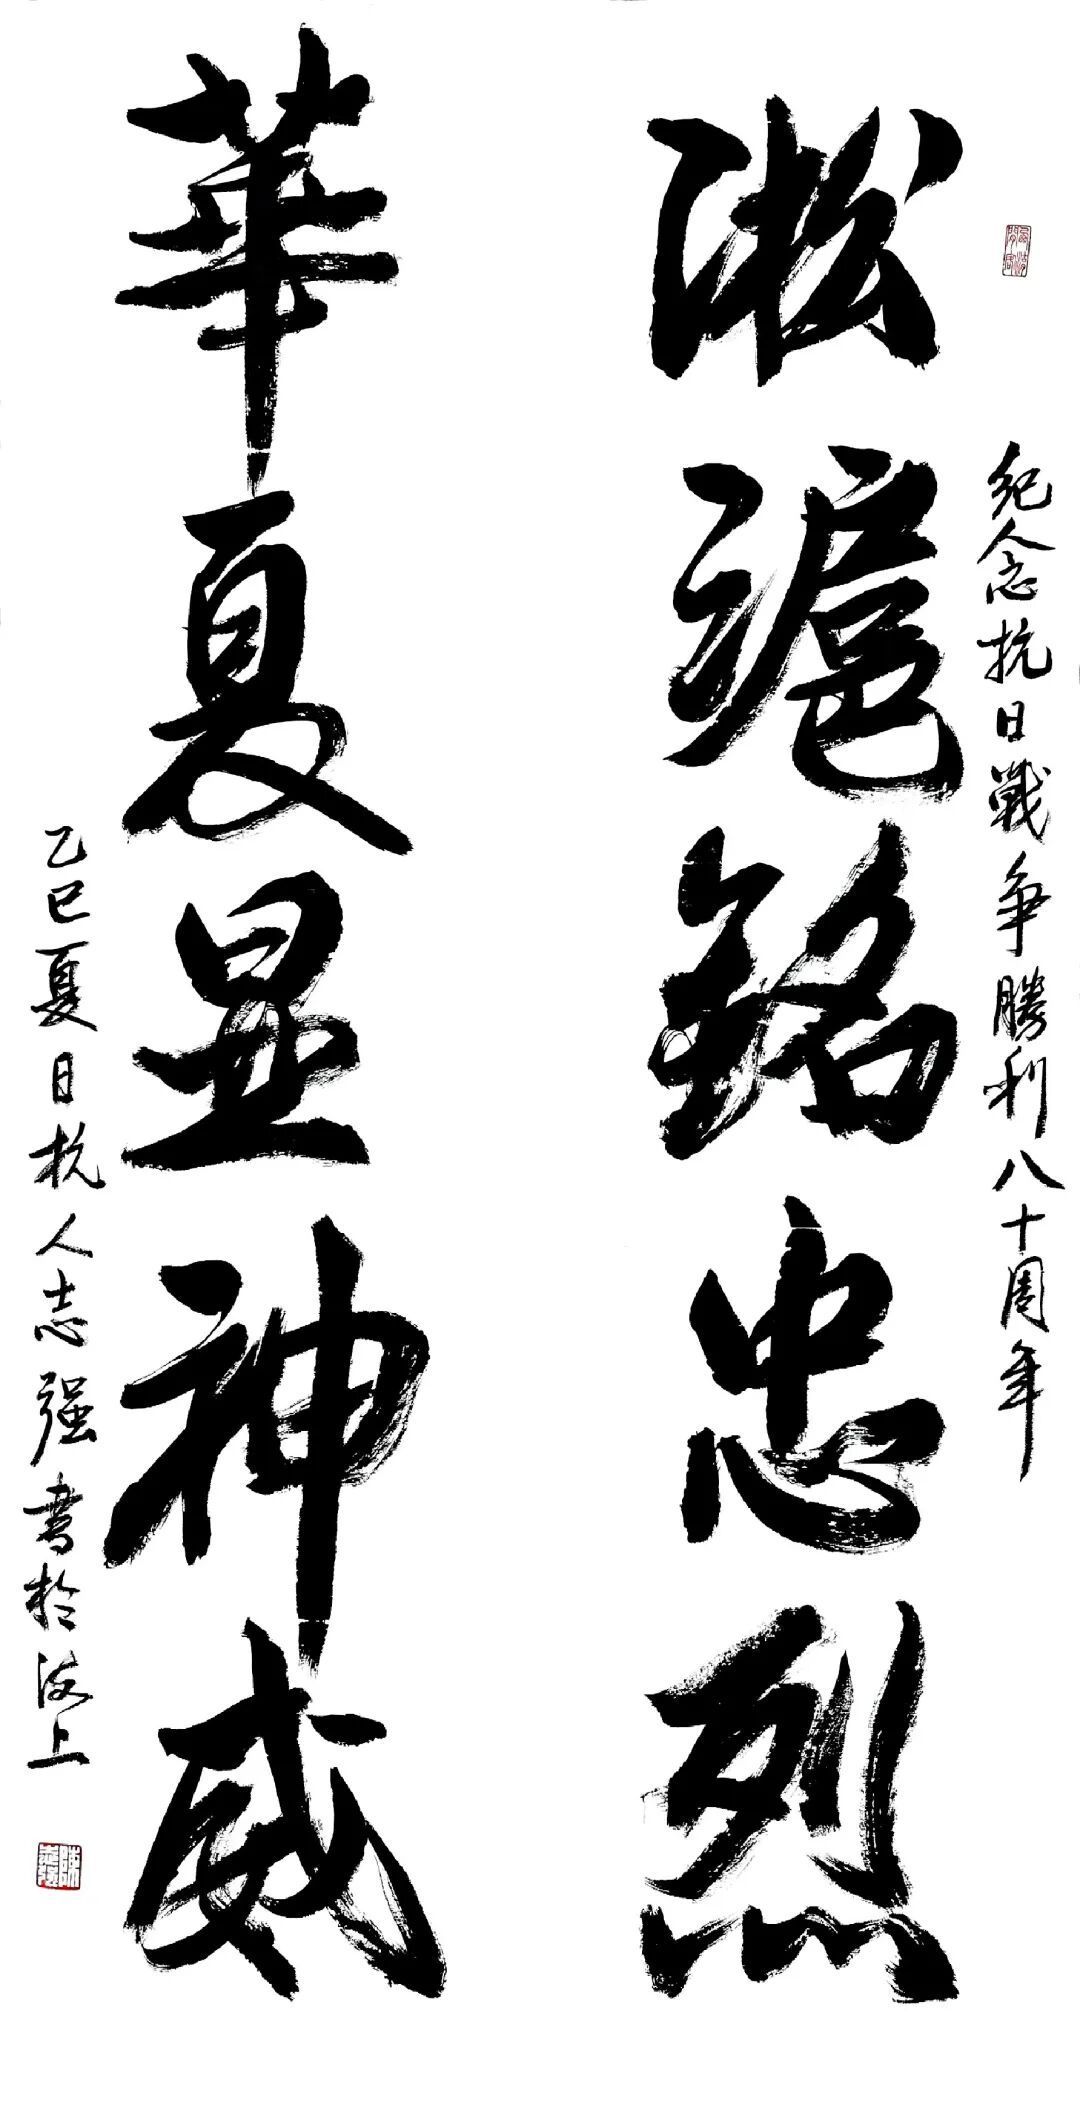 纪念抗日戰争勝利八十周年
淞滬銘忠烈
華夏显神威
乙巳夏日杭人志强書於海上